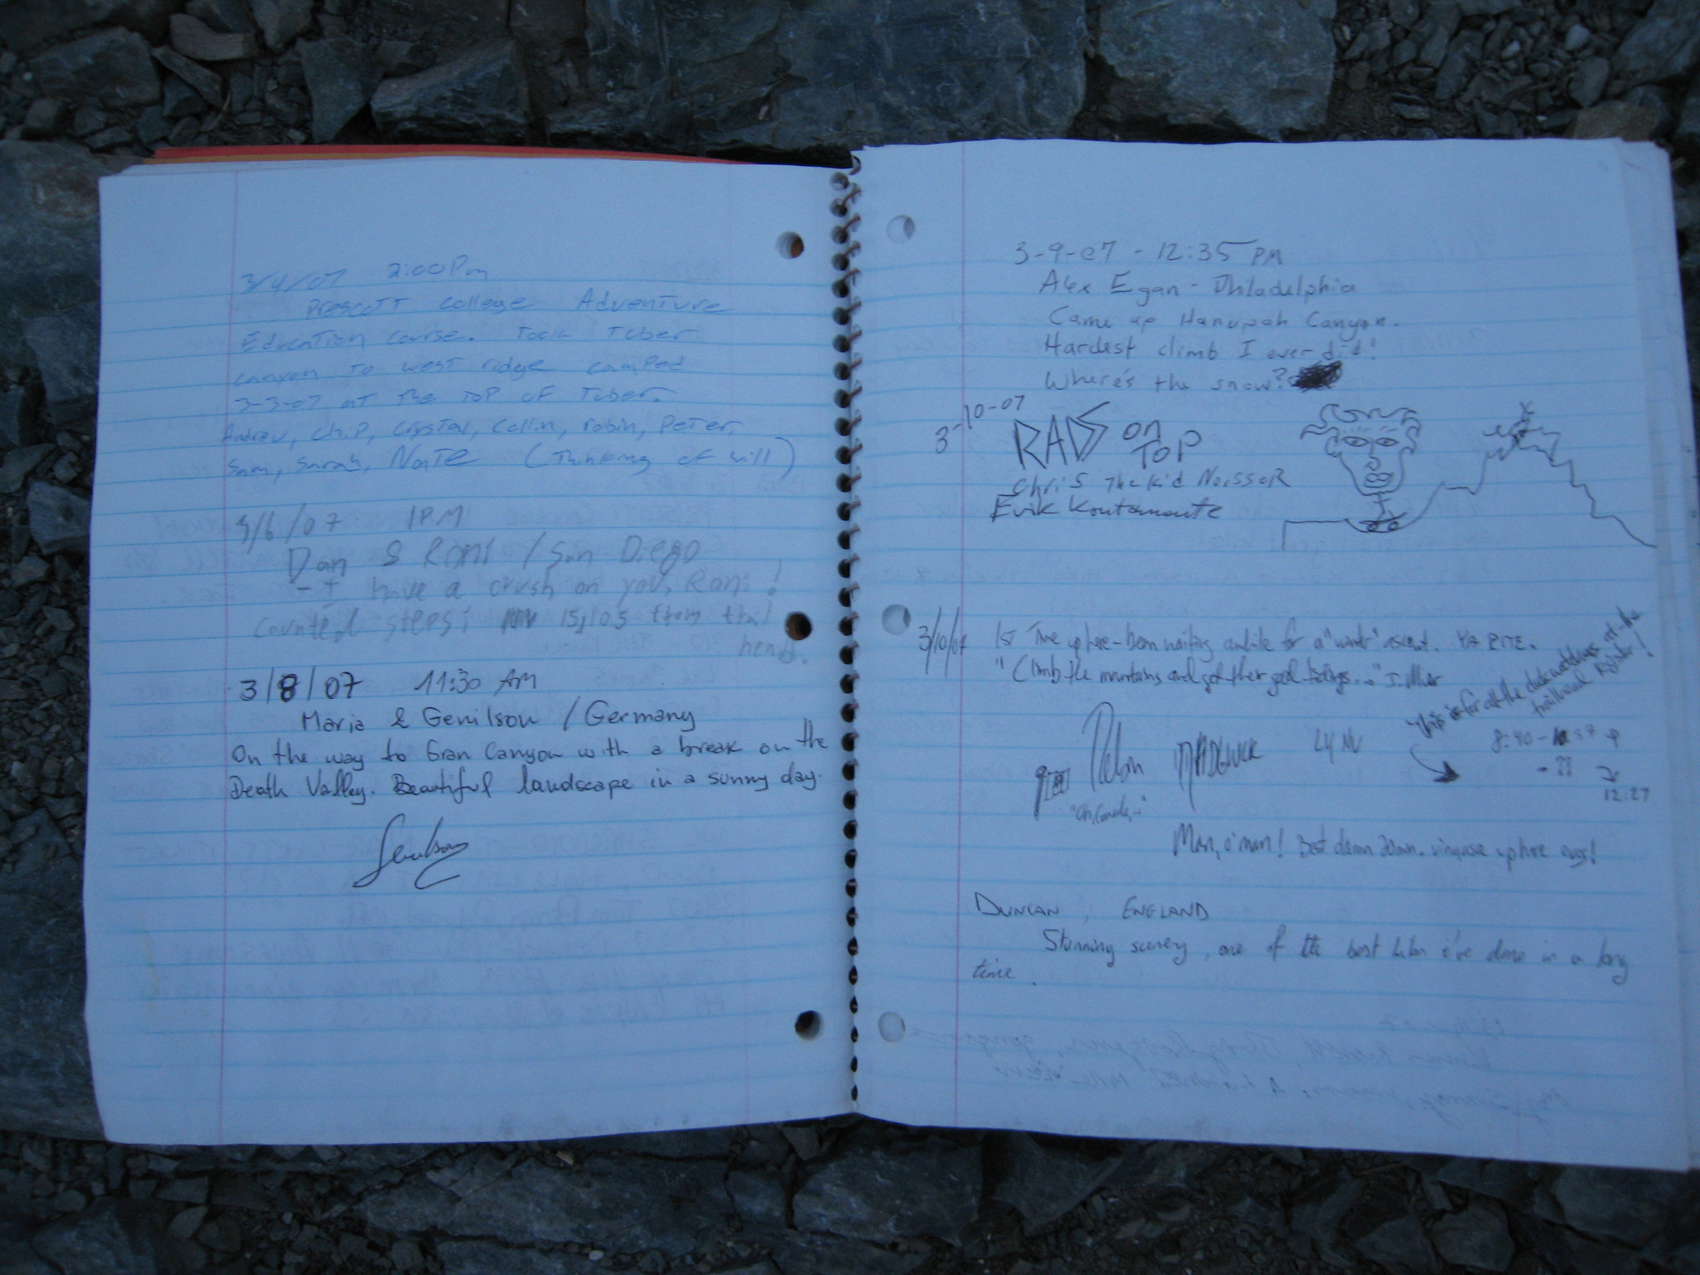 3/4/07 2:00 Pm
Prescott College Adventure
Education course. Took Tuber
canyon to west ridge camped
3-3-07 at the top of Tuber.
Andrew, Chip, Crystal, Collin, Robin, Peter,
Sam, Sarah, Nate (Thinking of Will)
3/6/07 1PM
Dan & Roni / San Diego
- I have a crush on you, Roni!
Counted steps; 15,105 from
3/8/07 11:30 AM
Maria & Genilson / Germany
On the way to Gran Canyon with a break on the
Death Valley. Beautiful landscape in a sunny day.
Genilson
3-9-07 - 12:35 PM
Alex Egan - Philadelphia
Came up Hanupah Canyon.
Hardest climb I ever did!
Where's the snow?
3-10-07
RADS on
TOP
Chris The Kid
Erik
3/10/07 1st Time up here - been waiting awhile for a "winter" ascent. YA RITE.
"Climb the mountains and get their good tidings..." J. Muir
This is for all the at the
trailhead register!
8:40 -
- ??
12:27
LV NV
Man, o' man! Best damn up here
DUNCAN, ENGLAND
Stunning scenery, one of the best hikes i've done in a long
time.